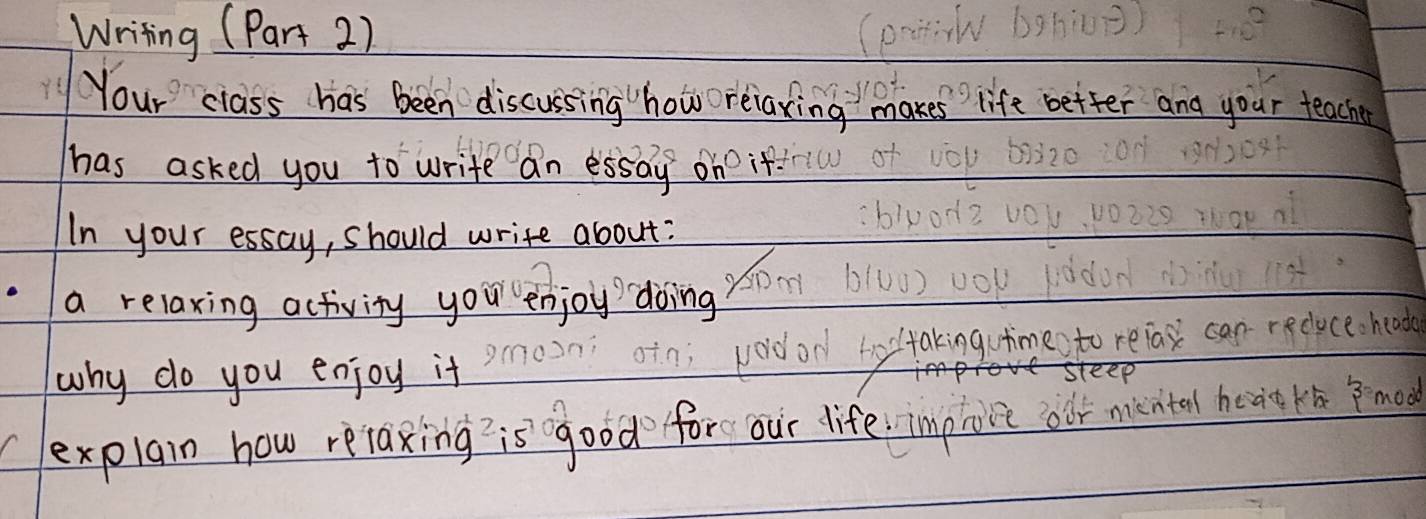 Writing (Part 2)
Your class has been discussing how relaxing makes life better and your teacher
has asked you to write an essay on it.
In your essay, should write about:
• a relaxing activity you enjoy doing
why do you enjoy it
taking time to relax can reduce
improve sleep
explain how relaxing is good for our life. improve our mental health & mood